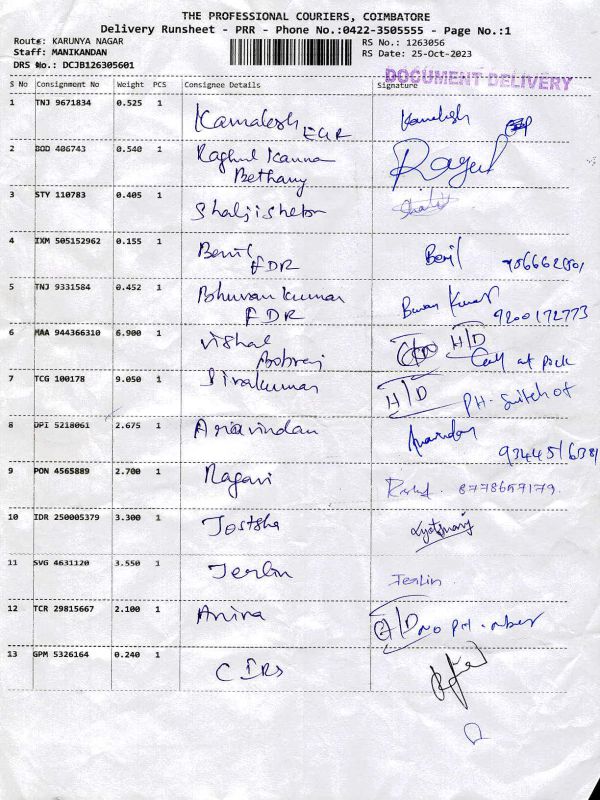 THE PROFESSIONAL COURIERS, COIMBATORE
Delivery Runsheet - PRR - Phone No.:0422-3505555 - Page No.:1
Route#: KARUNYA NAGAR RS No.: 1263056
Staff: MANIKANDAN RS Date: 25-Oct-2023
DRS No.: DCJB126305601
DOCUMENT DELIVERY
S No Consignment No Weight PCS Consignee Details Signature
1 TNJ 9671834 0.525 1 Kamalesh Kamalesh
EGR
2 BOD 406743 0.540 1 Raghul Kanna Ragul
Bethany
3 STY 110783 0.405 1 Shaljisheton
4 IXM 505152962 0.155 1 Benil Benil
FDR
5 TNJ 9331584 0.452 1 Bhuvan Kumar Buvan Kumar
FDR 9200172773
6 MAA 944366310 6.900 1 Vishal H/D
Call at pick
7 TCG 100178 9.050 1 Sivakumar H/D
PH. Switch of
8 DPI 5218061 2.675 1 Aravindan
9 PON 4565889 2.700 1 Ragavi 8778657179.
10 IDR 250005379 3.300 1 Jostsha
11 SVG 4631120 3.550 1 Jerlin Jerlin.
12 TCR 29815667 2.100 1 no PH. number
13 GPM 5326164 0.240 1 CIRS